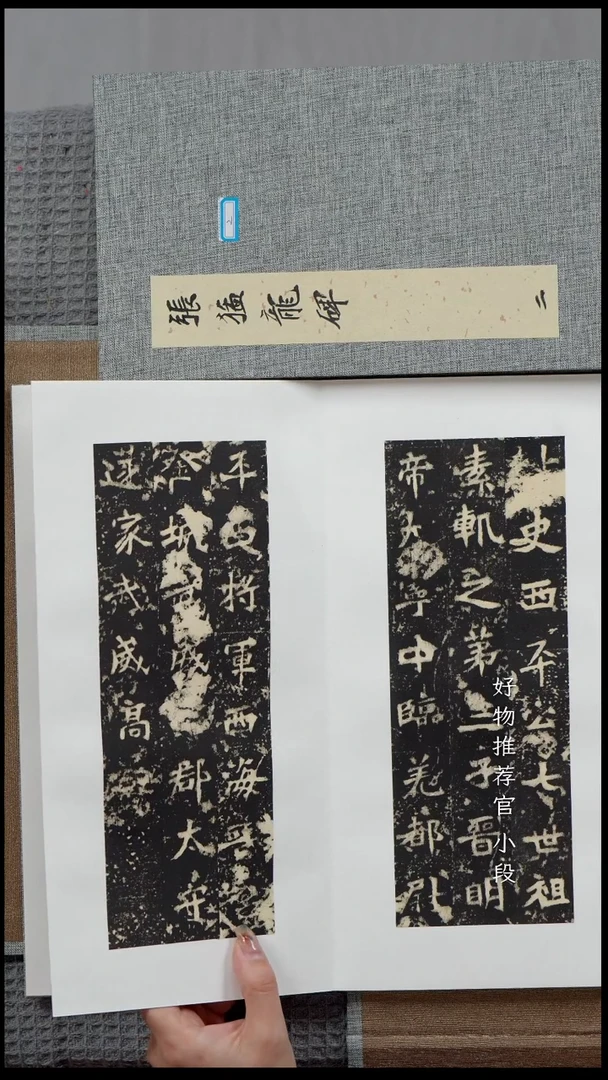 張猛龍碑 二
史西平公七世祖
素軌之第三子晉明
帝大寧中臨羌都尉
平西將軍西海晉
城武威郡大守
遂家武威高
好物推荐官 小段